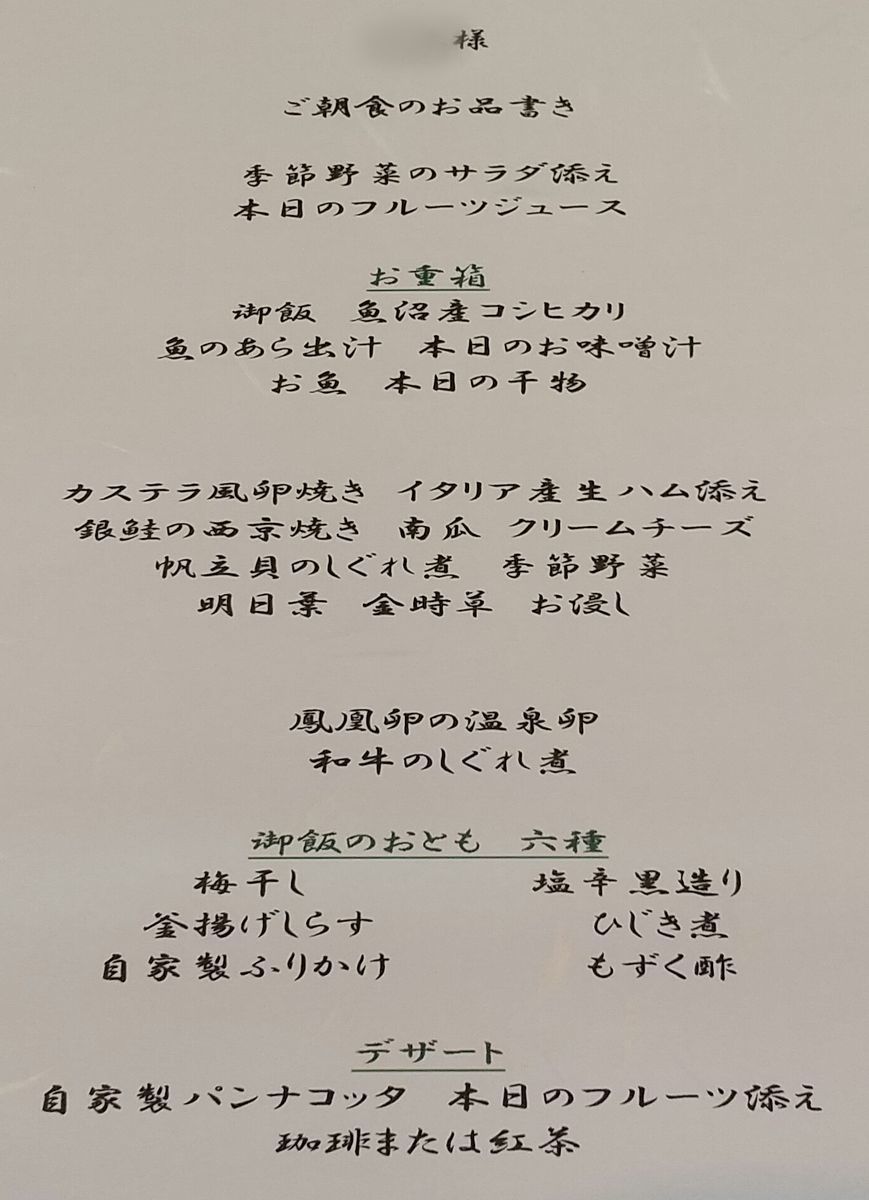 様
ご朝食のお品書き
季節野菜のサラダ添え
本日のフルーツジュース
お重箱
御飯　魚沼産コシヒカリ
魚のあら出汁　本日のお味噌汁
お魚　本日の干物
カステラ風卵焼き　イタリア産生ハム添え
銀鮭の西京焼き　南瓜　クリームチーズ
帆立貝のしぐれ煮　季節野菜
明日葉　金時草　お浸し
鳳凰卵の温泉卵
和牛のしぐれ煮
御飯のおとも　六種
梅干し　塩辛黒造り
釜揚げしらす　ひじき煮
自家製ふりかけ　もずく酢
デザート
自家製パンナコッタ　本日のフルーツ添え
珈琲または紅茶